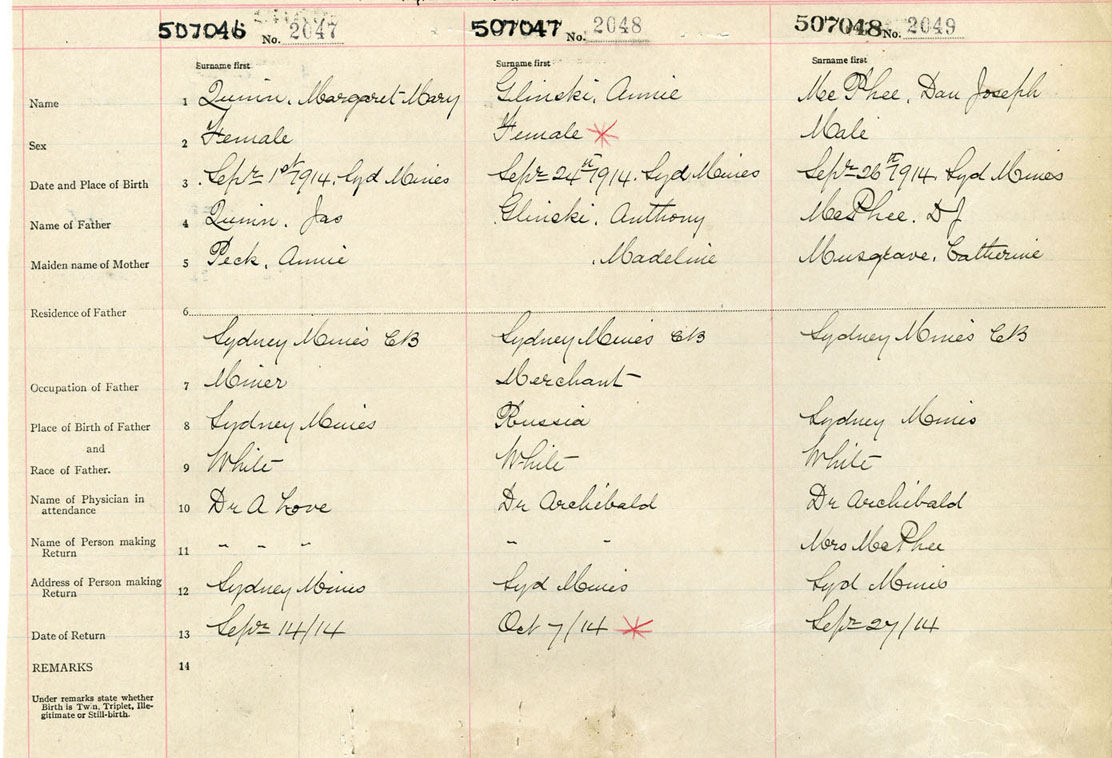 507046 No. 2047 507047 No. 2048 507048 No. 2049
Surname first Surname first Surname first
Name 1 Quinn, Margaret Mary Glinski, Annie McPhee, Dan Joseph
Sex 2 Female Female Male
Date and Place of Birth 3 Sepr 1st/1914. Syd Mines Sepr 24th/1914. Syd Mines Sepr 26th/1914 Syd Mines
Name of Father 4 Quinn, Jas Glinski, Anthony McPhee, D J
Maiden name of Mother 5 Peck, Annie , Madeline Musgrave, Catherine
Residence of Father 6
Sydney Mines CB Sydney Mines CB Sydney Mines CB
Occupation of Father 7 Miner Merchant
Place of Birth of Father 8 Sydney Mines Russia Sydney Mines
and
Race of Father. 9 White White White
Name of Physician in
attendance 10 Dr A Love Dr Archibald Dr Archibald
Name of Person making
Return 11 " " " " " Mrs McPhee
Address of Person making
Return 12 Sydney Mines Syd Mines Syd Mines
Date of Return 13 Sepr 14/14 Oct 7/14 Sepr 27/14
REMARKS 14
Under remarks state whether
Birth is Twin, Triplet, Ille-
gitimate or Still-birth.